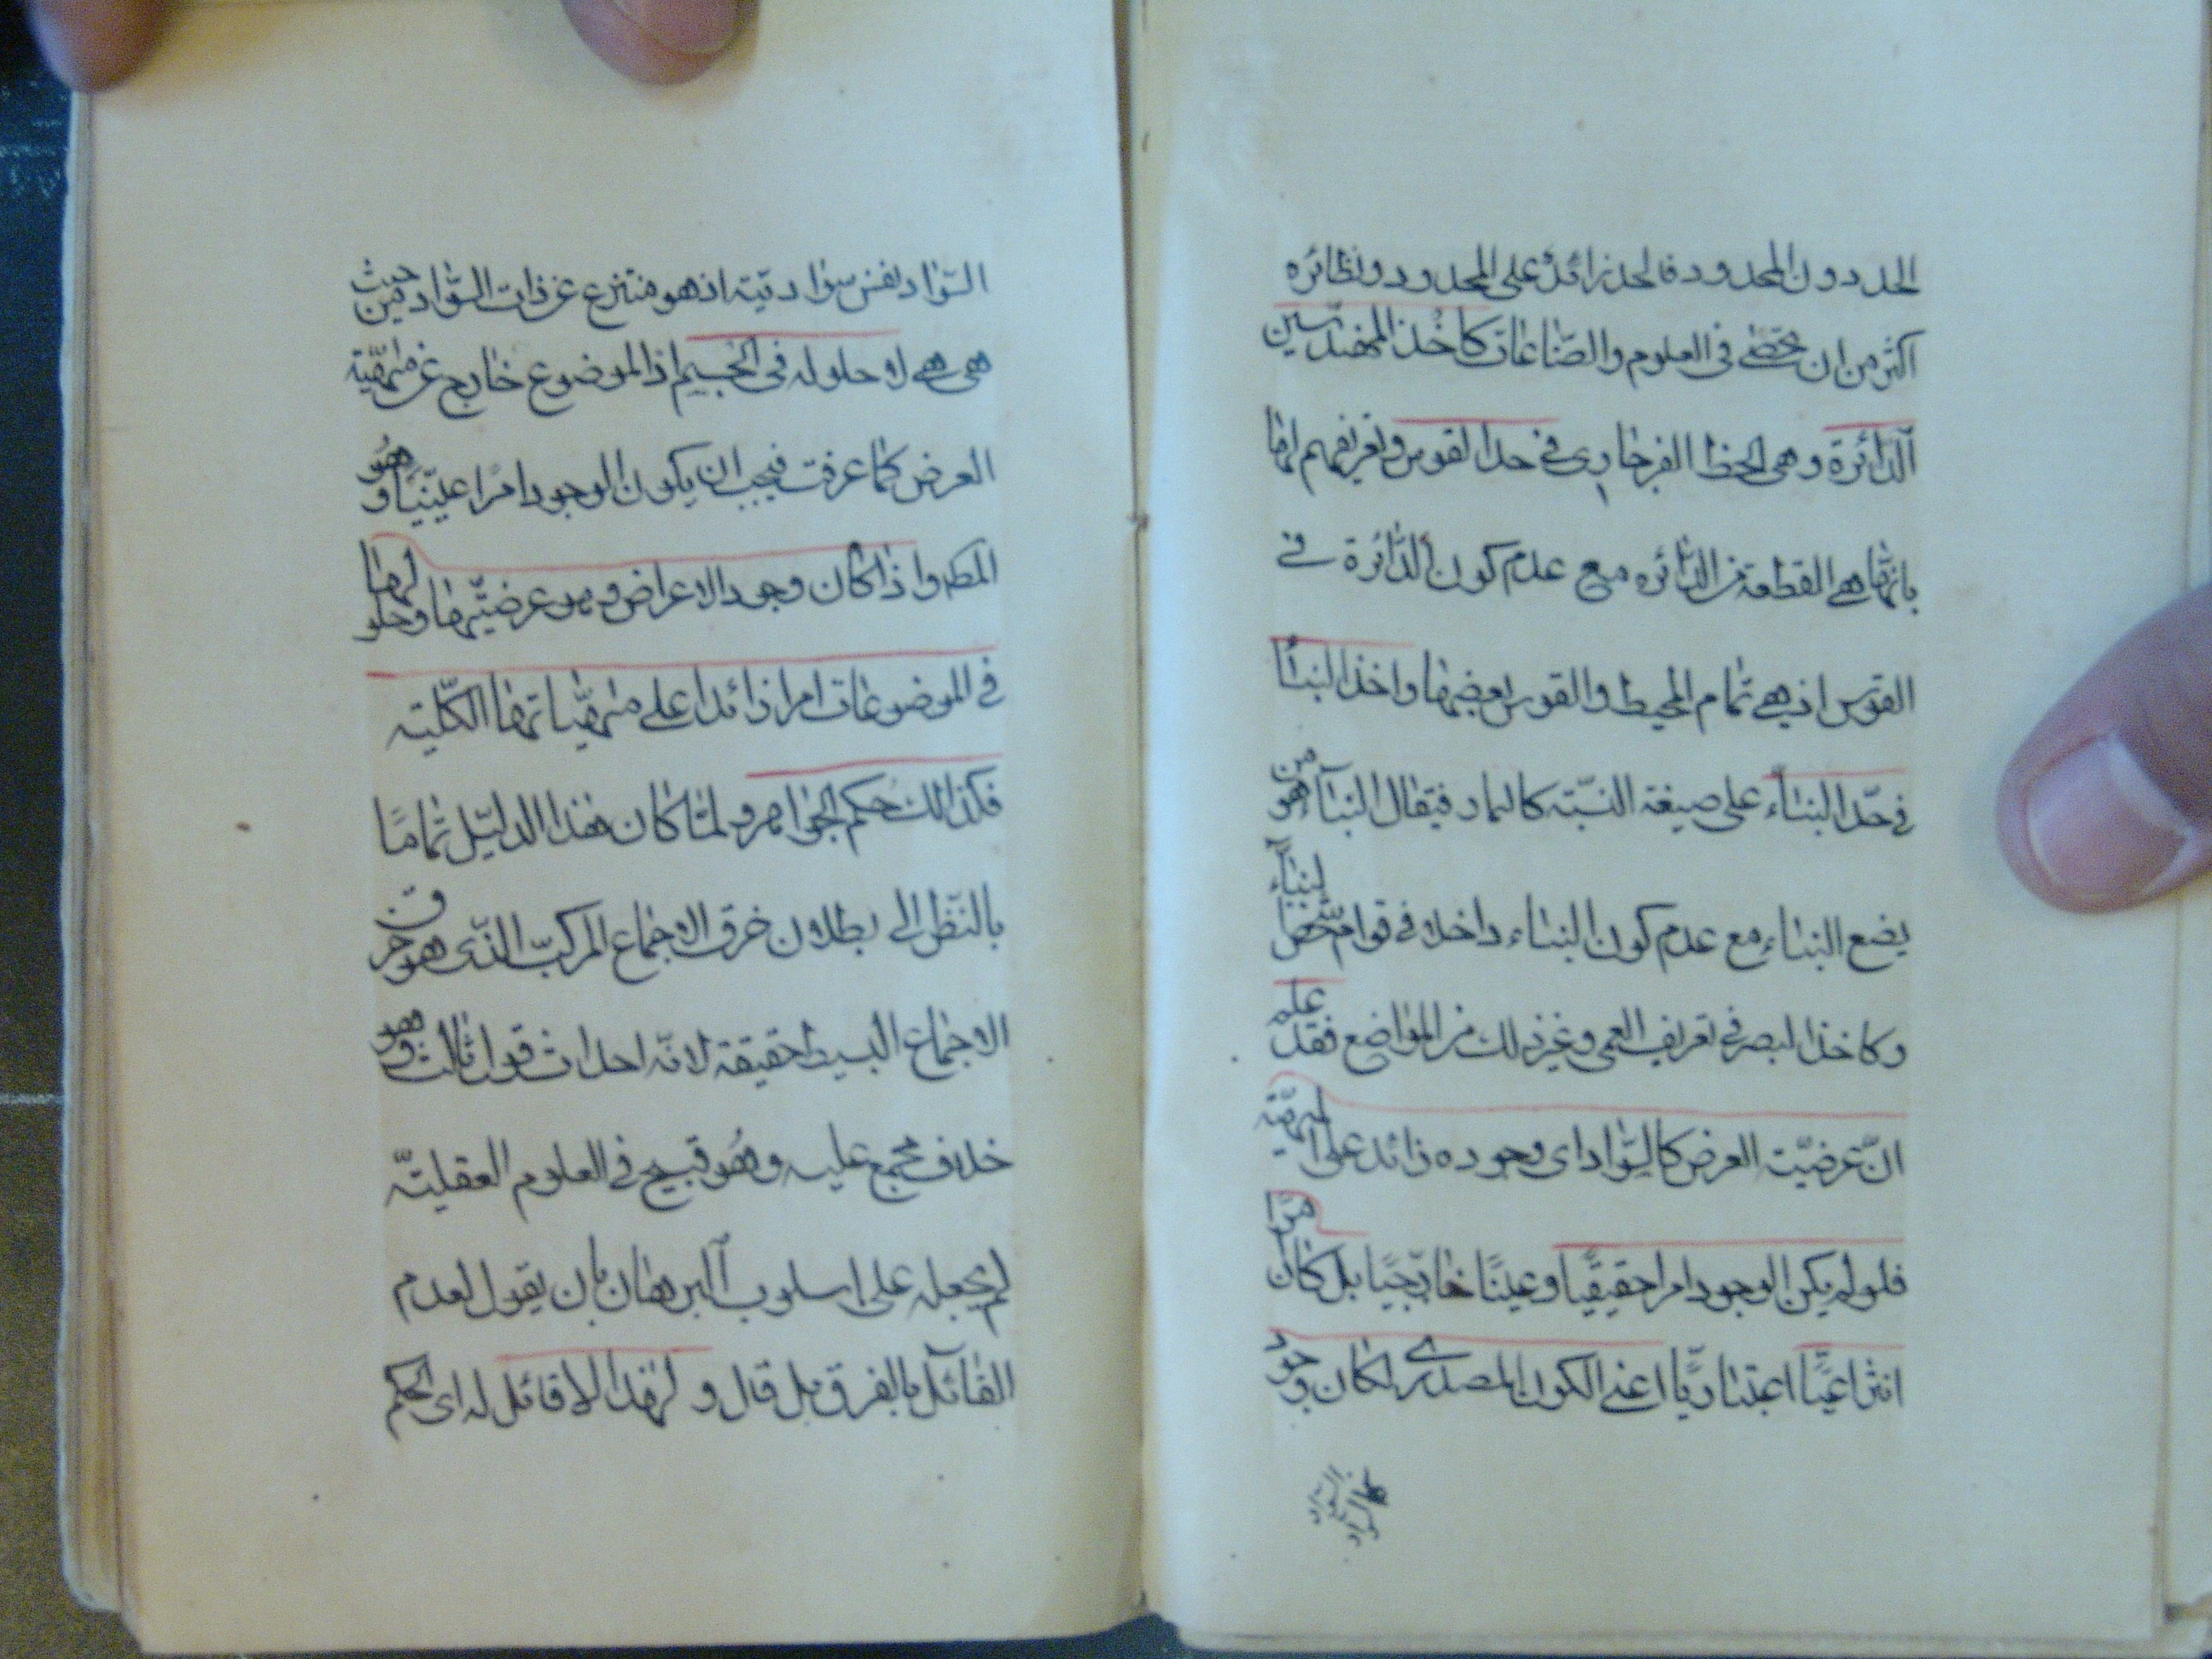 الحد دون المحدود فالحد زائد على المحدود ونظائره
اكثر من ان تحصى فى العلوم والصناعات كاخذ المهندسين
الدائرة وهى الخط الفرجارى فى حد القوس وتعريفهم اياها
بانها هى القطعة من الدائره مع عدم كون الدائرة فى
القوس اذ هى تمام المحيط والقوس بعضها واخذ البناء
فى حد البناء على صيغة النسبة كالمار فيقال البناء هو من
يضع البناء مع عدم كون البناء داخلا فى قوام شخص البناء
وكاخذ البصر فى تعريف العمى وغير ذلك من المواضع فقد علم
ان عرضيت العرض كالسواد اى وجوده زائد على المهية
فلو لم يكن الوجود امرا حقيقيا وعينا خارجيا بل كان امرا
انتزاعيا اعتباريا اعنى الكون المصدرى لكان وجود
السواد نفس سواديته اذ هو منتزع عن ذات السواد من حيث
هى هى لا حلوله فى الجسم اذ الموضوع خارج عن مهية
العرض كما عرفت فيجب ان يكون الوجود امرا عينيا وهو
المط واذا كان وجود الاعراض وهو عرضيتها وحلولها
فى الموضوعات امرا زائدا على مهياتها الكلية
فكذلك حكم الجواهر ولما كان هذا الدليل تماما
بالنظر الى بطلان خرق الاجماع المركب الذى هو خرق
الاجماع البسيط حقيقة لانه احداث قول ثالث وهو
خلاف مجمع عليه وهو قبيح فى العلوم العقلية
لم يجعله على اسلوب البرهان بان يقول لعدم
القائل بالفرق بل قال و لهذا لا قائل له اى الحكم